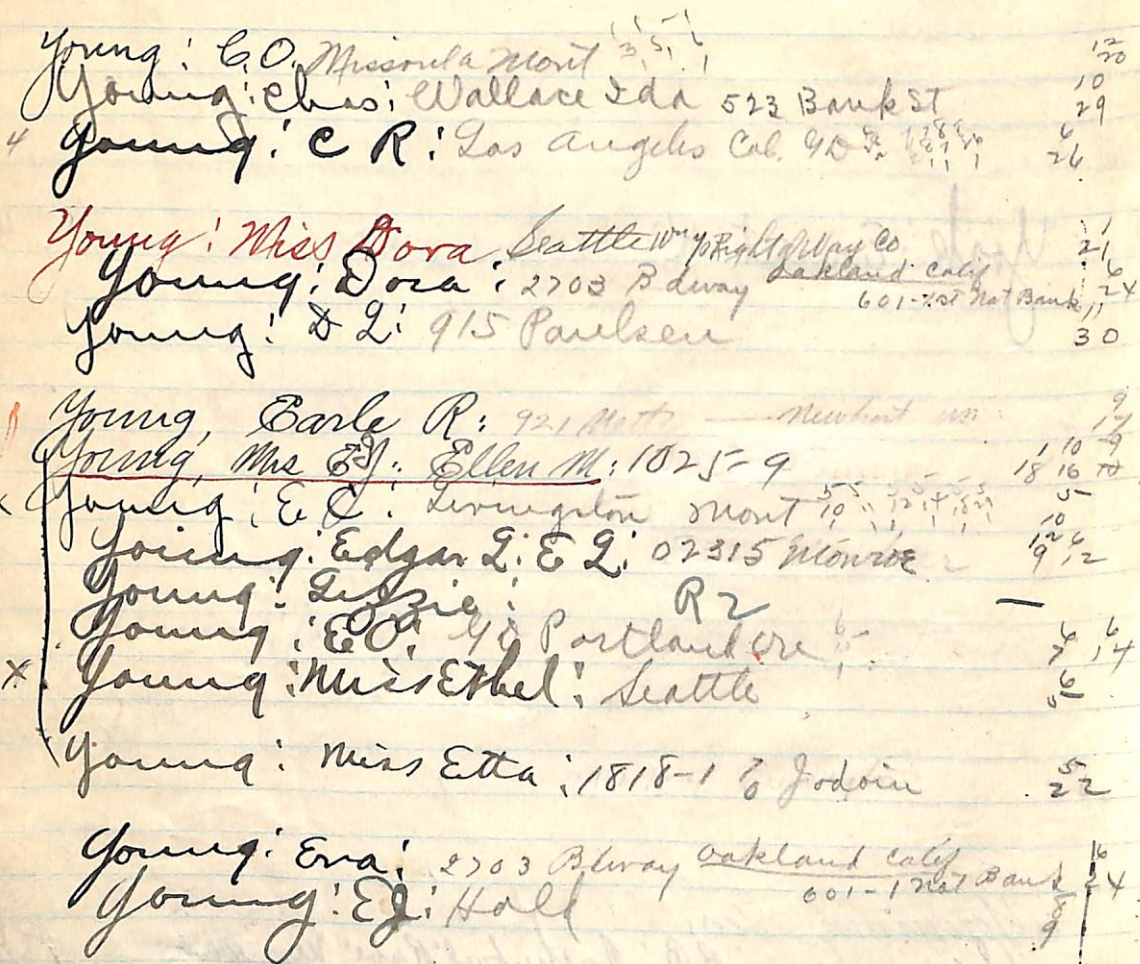 Young: C.O. Missoula Mont
Young: Chas: Wallace Ida 523 Bank St 10 29
4 Young: C R: Los Angeles Cal. GD 6 26
Young: Miss Dora Seattle Wn Right of Way Co 21
Young: Dora: 2703 Bdway Oakland Calif 601-1st Nat Bank 6 24
Young: D L: 915 Paulsen 11 30
Young, Earle R: 921 Newport 9 17
Young, Mrs EJ: Ellen M: 1025-9 1 10 9 18 16
x Young: E C: Livingston Mont 5 10
Young: Edgar L: E L: 02315 Monroe 12 6 9 12
Young: Lizzie: R2 —
Young: EO: GD Portland Ore 6 14
x Young: Miss Ethel: Seattle 6 5
Young: Miss Etta: 1818-1 % Jodoin 5 22
Young: Eva: 2703 Bdway Oakland Calif 601-1 Nat Bank 16 24
Young: EJ: Hall 8 9